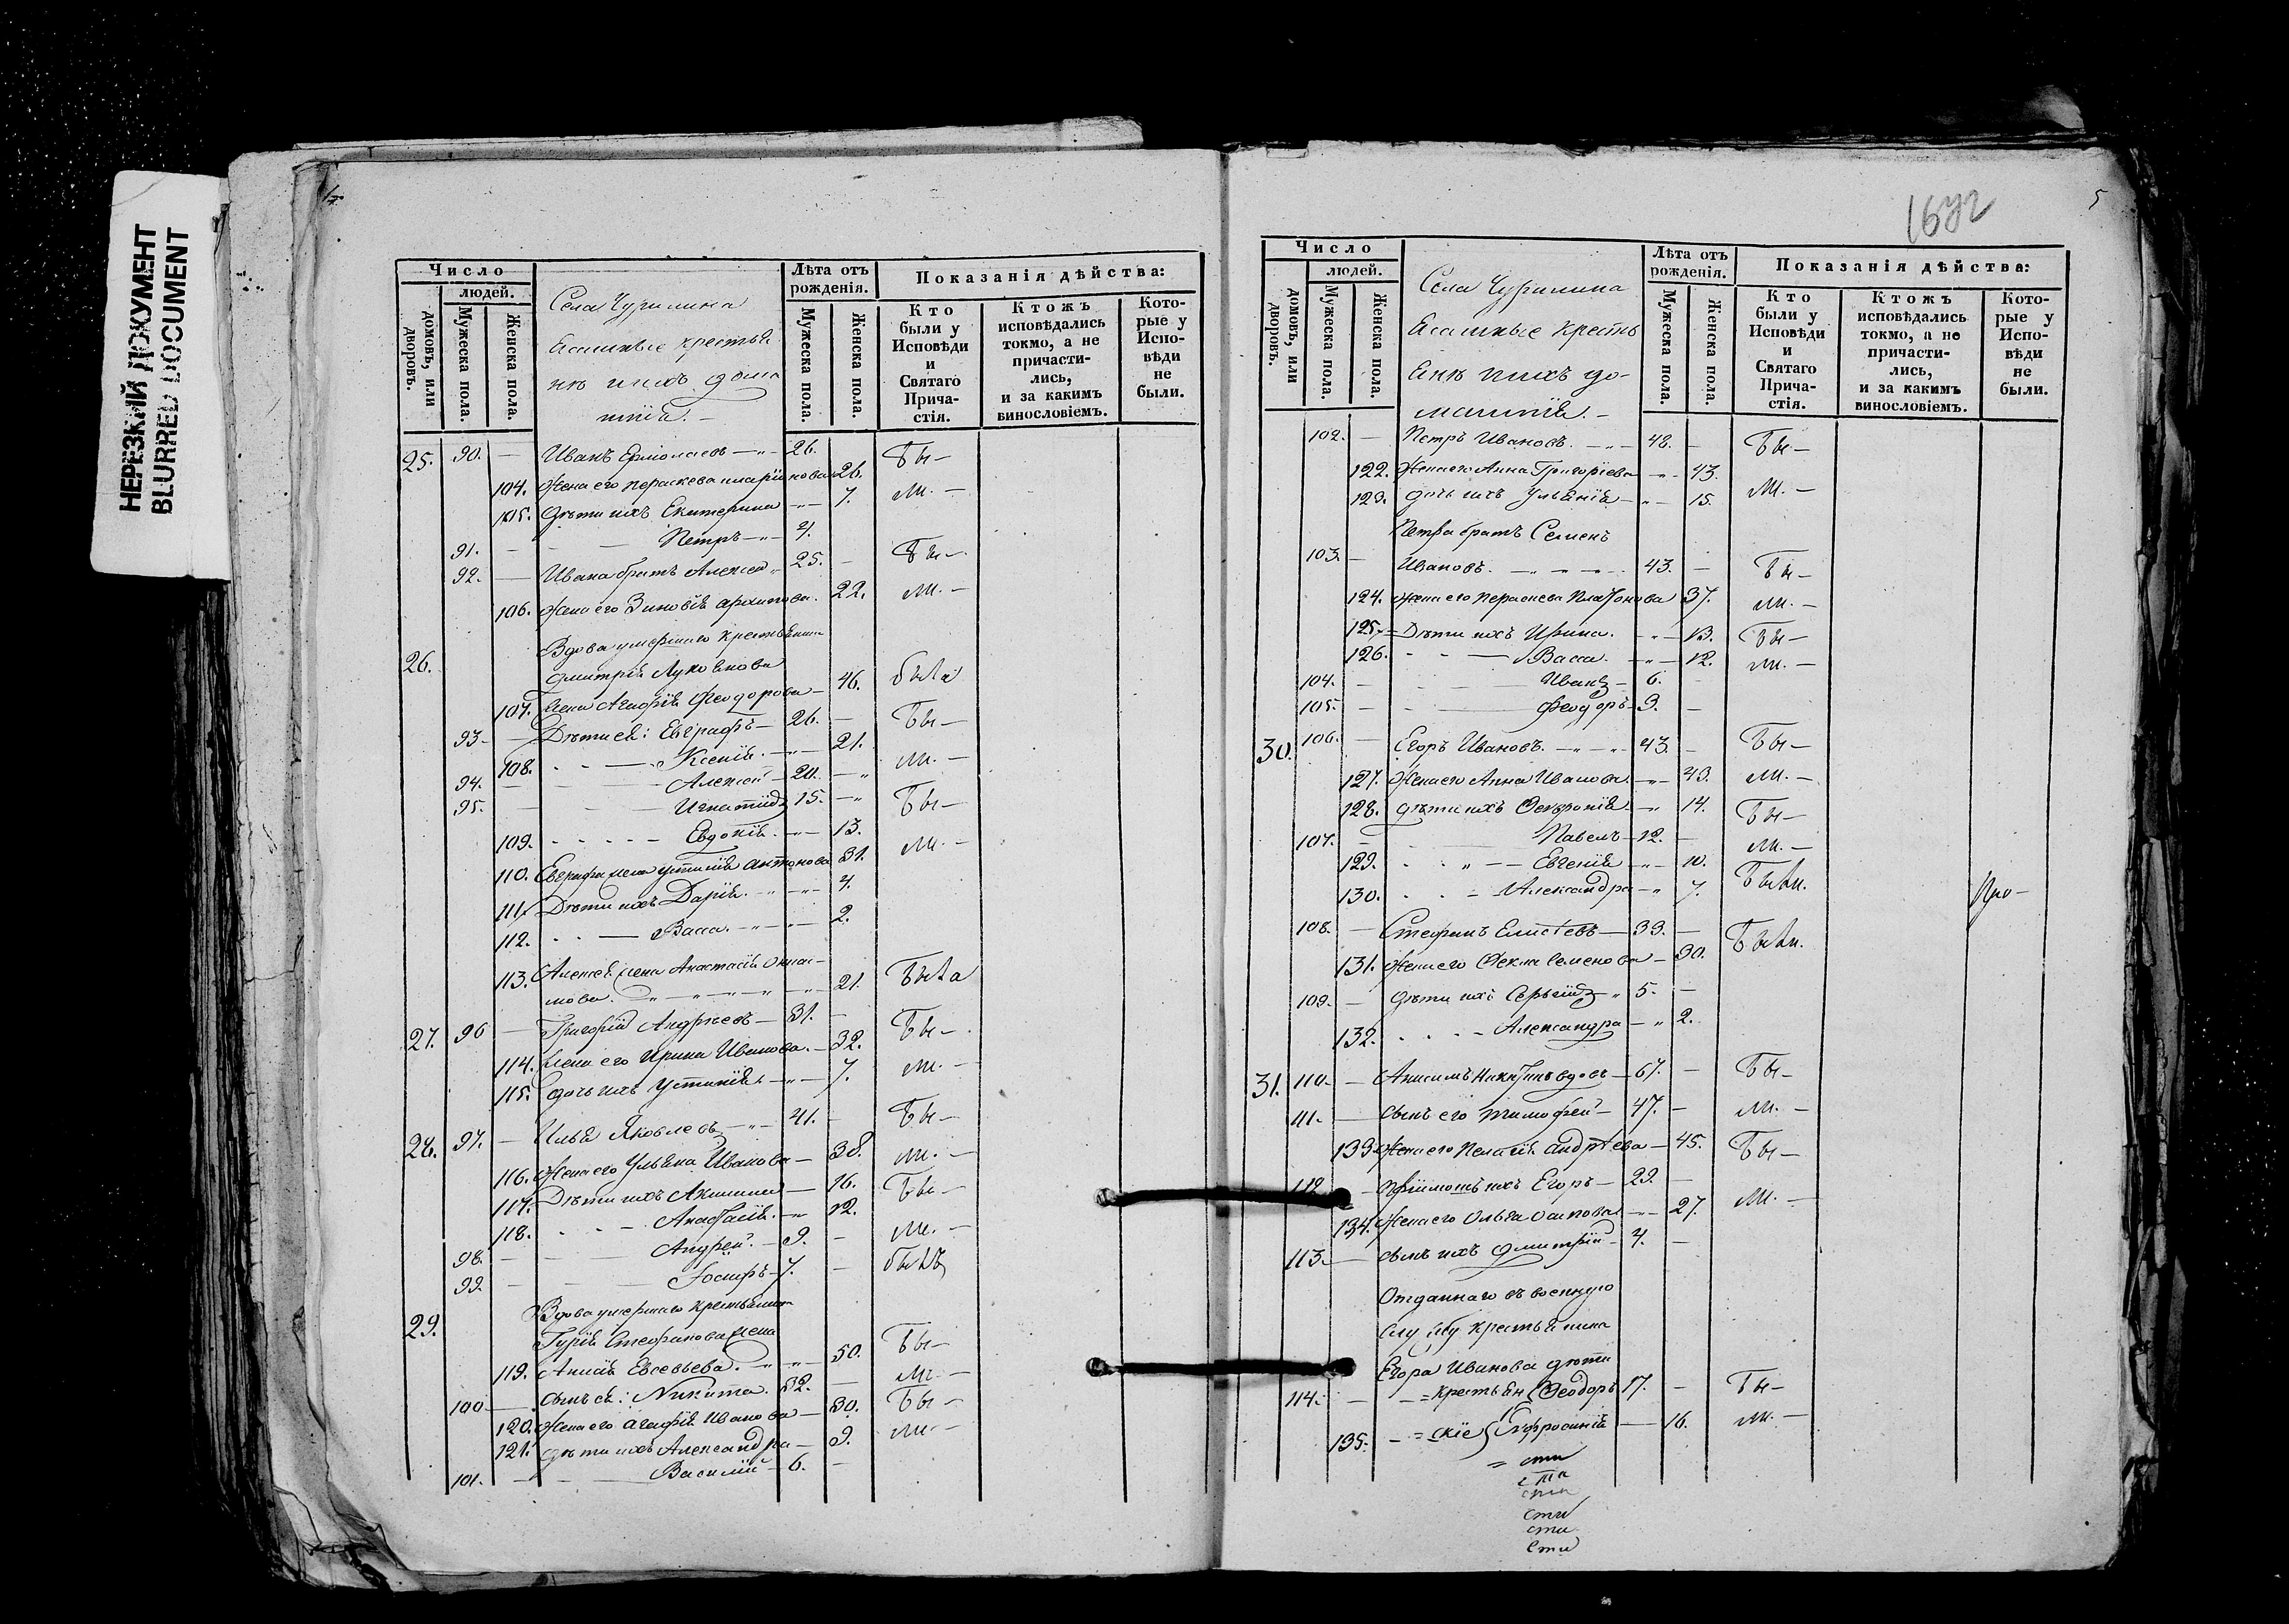 НЕРЕЗКИЙ ДОКУМЕНТ
BLURRED DOCUMENT
Число
людей.
домовъ, или дворовъ.
Мужеска пола.
Женска пола.
Села Чурилина
крестья
не ихъ дома
шніе. –
Лѣта отъ рожденія.
Мужеска пола.
Женска пола.
Показанія дѣйства:
Кто были у Исповѣди и Святаго Прича-стія.
Ктожъ исповѣдались токмо, а не причасти-лись, и за какимъ винословіемъ.
Кото-рые у Испо-вѣди не были.
25. 90. – Иванъ Ермолаевъ – 26. Бы–
104. Жена его Параскева Иларіонова 26. ли. –
105. Дѣти ихъ Екатерина – 7.
91. – Петръ – 4.
92. – Ивана братъ Алексей 25. – Бы–
106. Жена его Зиновія Архипова. 22. ли. –
26. Вдова умершаго крестьянина
Дмитрія Лукоянова
107. Жена Агафія Феодорова – 46. была
93. – Дѣти ея: Евграфъ – 26. – Бы–
108. – Ксенія. – 21. ли. –
94. – Алексей – 20. –
95. – Игнатій 15. – Бы–
109. – Евдокія. – 13. ли. –
110. Евграфа жена Устинія Антонова 31.
111. Дѣти ихъ Дарія. – 4.
112. – Васса. – 2.
113. Алексея жена Анастасія
мова. – 21. Была
27. 96 – Григорій Андреевъ – 31. – Бы–
114. Жена его Ирина Иванова. – 32. ли. –
115. Дочь ихъ Устинія. – 7.
28. 97. – Илья Яковлевъ – 41. – Бы–
116. Жена его Ульяна Иванова – 38. ли. –
117. Дѣти ихъ Акилина – 16. Бы–
118. – Анастасія. – 12. ли. –
98. – Андрей. – 9. –
99. – Іосифъ – 7. – былъ
29. Вдова умершаго крестьянина
Гурія Стефанова жена
119. Анисія Евсевьева. – 50. Бы–
100 – Сынъ ея: Никита. 32. – ли. –
120. Жена его Агафія Иванова – 30. Бы–
121. Дѣти ихъ Александра – 9. ли. –
101. – Василій – 6. –
5
Число
людей.
домовъ, или дворовъ.
Мужеска пола.
Женска пола.
Села Чурилина
кресть
яне ихъ до-
машніе. –
Лѣта отъ рожденія.
Мужеска пола.
Женска пола.
Показанія дѣйства:
Кто были у Исповѣди и Святаго Прича-стія.
Ктожъ исповѣдались токмо, а не причасти-лись, и за какимъ винословіемъ.
Кото-рые у Испо-вѣди не были.
102. – Петръ Ивановъ. – 48. – Бы–
122. Жена его Анна Григорьева – 43.
123. дочь ихъ Ульянія – 15. ли. –
Петра братъ Семенъ
103. – Ивановъ. – 43. – Бы–
124. Жена его Параскева Платонова 37. ли. –
125. Дѣти ихъ Ирина. – 13. Бы–
126. – Васса. – 12. ли. –
104. – Иванъ – 6.
105. – Феодоръ – 3. –
30. 106. – Егоръ Ивановъ. – 43. – Бы–
127. Жена его Анна Иванова. – 43. ли. –
128. дѣти ихъ Февронія – 14. Бы–
107. – Павелъ – 12. – ли. –
129. – Евгенія – 10.
130. – Александра – 7. Были.
108. – Стефанъ Елисѣевъ – 33. – Были.
131. Жена его Фекла Семенова – 30.
109. – дѣти ихъ Сергій 5. –
132. – Александра – 2.
31. 110. – Анисимъ Никитинъ вдовъ – 67. – Бы–
111. – сынъ его Тимофей – 47. – ли. –
133. Жена его Пелагія Андрѣева – 45. Бы–
112 – Пріимошъ ихъ Егоръ – 29. –
134. Жена его Ольга Осипова – 27. ли. –
113. – сынъ ихъ Дмитрій – 4. –
Отданнаго въ военную
службу крестьянина
Егора Иванова дѣти
114. – = крестьян { Феодоръ 17. – Бы–
135. – = скіе { Ефросинія – 16. ли. –
= сти
сти
сти
сти
сти